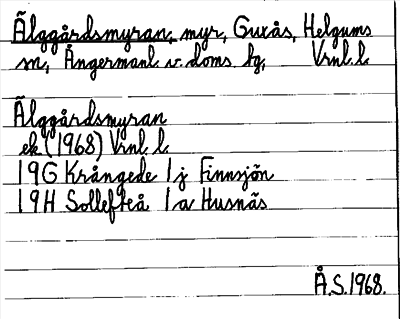 Älggårdsmyran, myr, Guxås, Helgums
sn, Ångermanl. v. doms. hg, Vrnl. l.
Älggårdsmyran
ek (1968) Vrnl. l.
19G Krångede 1j Finnsjön
19H Sollefteå 1a Husnäs
Å.S. 1968.